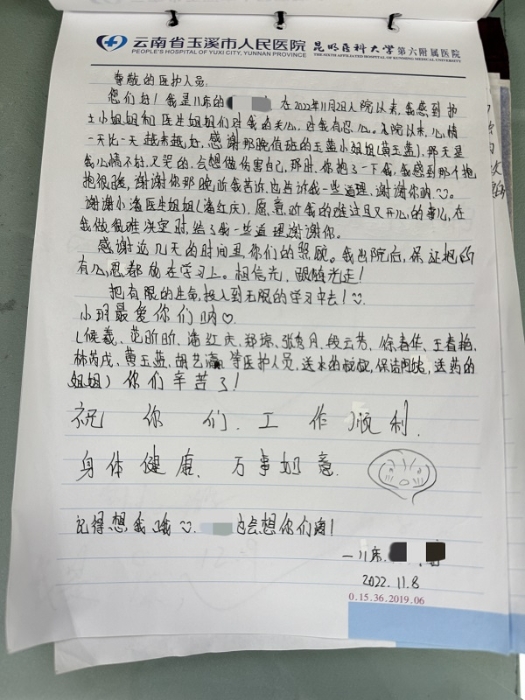 云南省玉溪市人民医院 昆明医科大学第六附属医院
PEOPLE'S HOSPITAL OF YUXI CITY, YUNNAN PROVINCE THE SIXTH AFFILIATED HOSPITAL OF KUNMING MEDICAL UNIVERSITY
尊敬的医护人员:
您们好!我是11床的 在2022年11月2日入院以来,我感到护
士小姐姐和医生姐姐们对我的关心,对我有忍心。入院以来,心情
一天比一天越来越好,感谢那晚值班的玉蓝小姐姐(黄玉蓝),那天是
我心情不好,又哭的,会想做伤害自己,那时,你抱了一下我,我感到那个抱
抱很暖,谢谢你那晚听我苦诉,也告诉我一些道理,谢谢你呐
谢谢小潘医生姐姐(潘红庆),愿意听我的难过且又开心的事儿,在
我做很难决定时,给了我一些道理谢谢你。
感谢这几天的时间里,你们的照顾。我出院后,保证把所
有心思都放在学习上。相信光,跟随光走!
把有限的生命,投入到无限的学习中去!
小玥最爱你们呐♡
(侯羲、范昕昕、潘红庆、郑琼、段云芳、徐春华、王春艳、
林芮戌、黄玉蓝、胡艺 等医护人员,送水的叔叔,保洁阿姨,送药的
姐姐)你们辛苦了!
祝你们工作顺利
身体健康、万事如意
记得想我哦 也会想你们哦!
—11床.
2022.11.8
0.15.36.2019.06